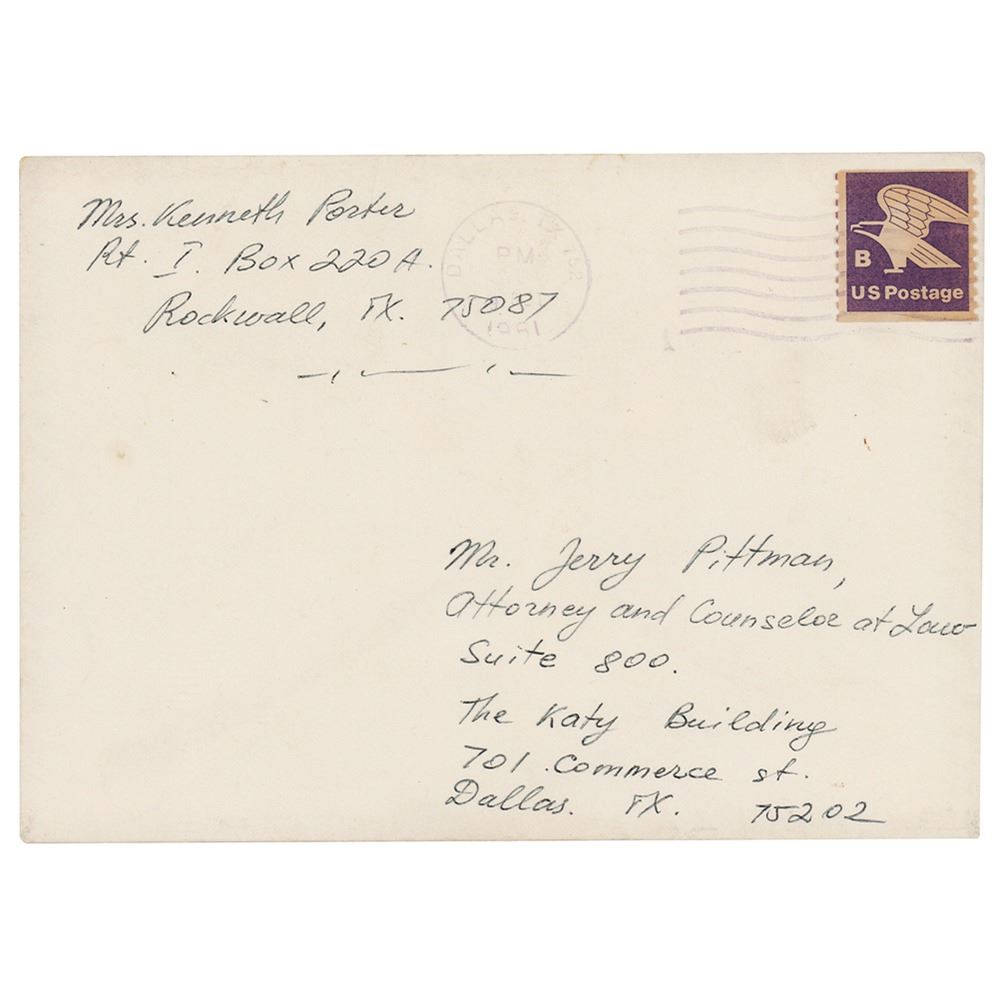 Mrs. Kenneth Porter
Rt. I. Box 220A.
Rockwall, TX. 75087
DALLAS, TX 752
PM
1981
B
US Postage
Mr. Jerry Pittman,
Attorney and Counselor at Law
Suite 800.
The Katy Building
701 Commerce st.
Dallas. TX. 75202